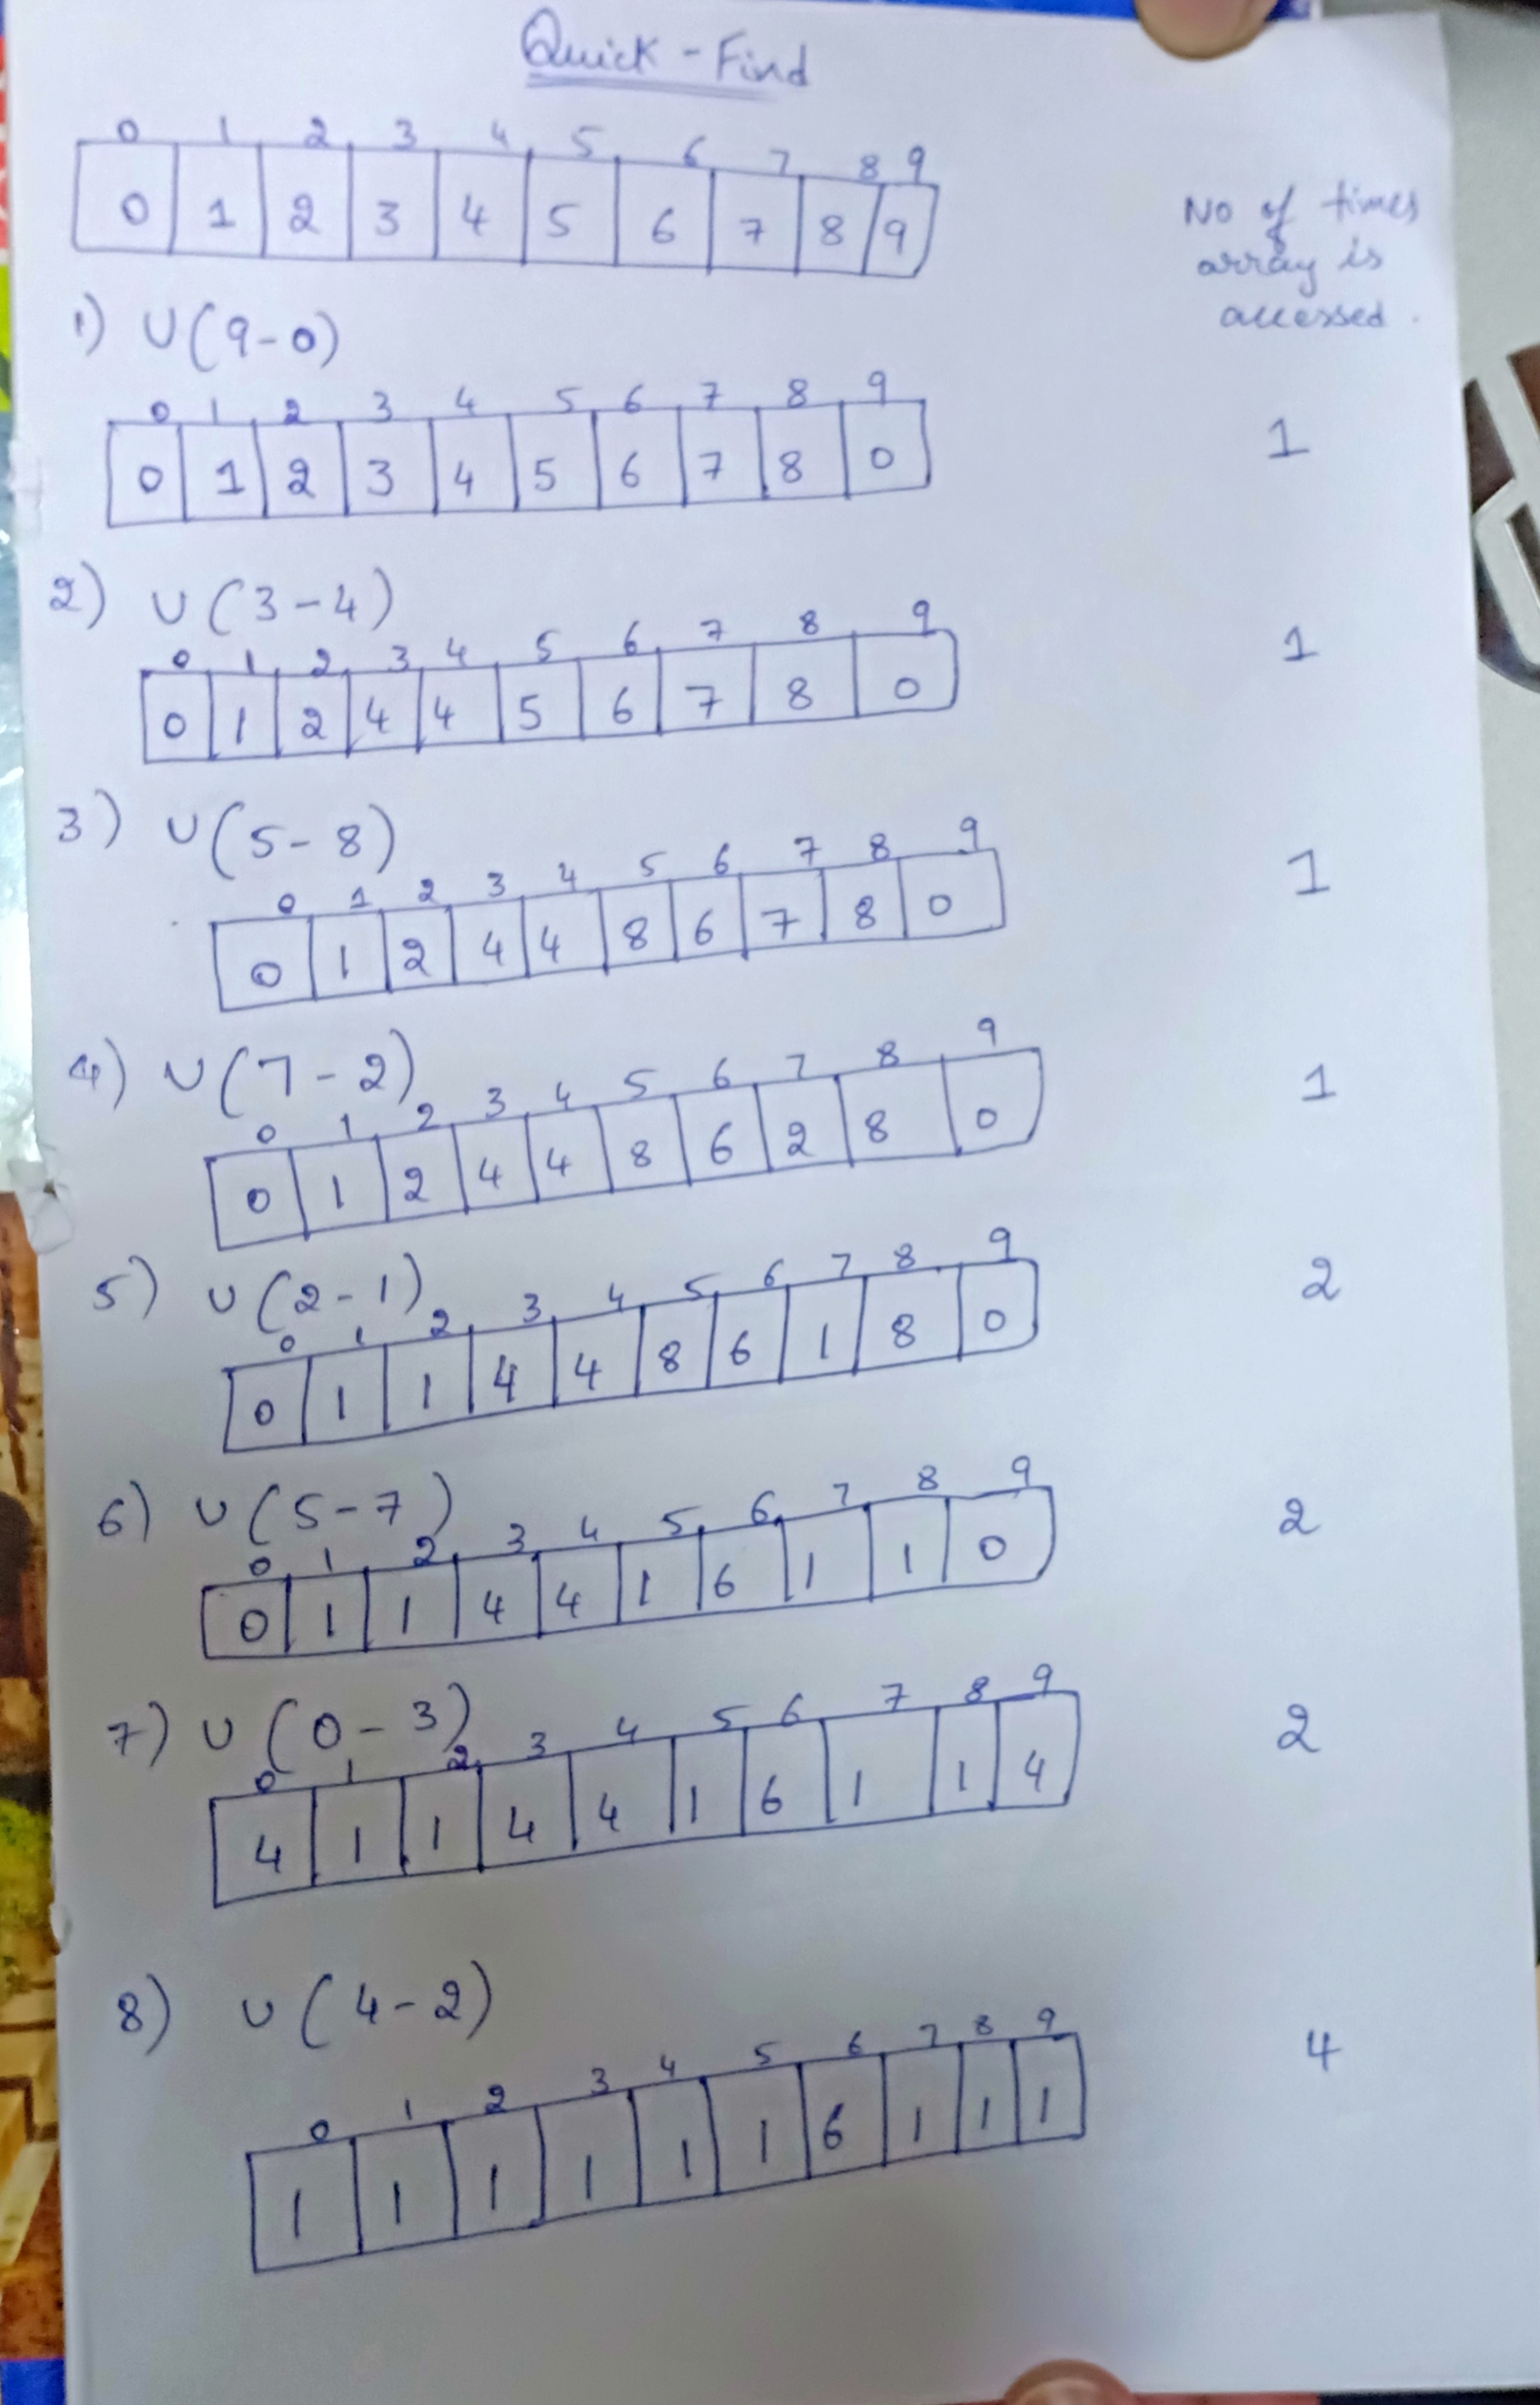 Quick - Find
0 1 2 3 4 5 6 7 8 9
0 1 2 3 4 5 6 7 8 9
No of times
array is
accessed.
1) U(9-0)
0 1 2 3 4 5 6 7 8 9
0 1 2 3 4 5 6 7 8 0
1
2) U(3-4)
0 1 2 3 4 5 6 7 8 9
0 1 2 4 4 5 6 7 8 0
1
3) U(5-8)
0 1 2 3 4 5 6 7 8 9
0 1 2 4 4 8 6 7 8 0
1
4) U(7-2)
0 1 2 3 4 5 6 7 8 9
0 1 2 4 4 8 6 2 8 0
1
5) U(2-1)
0 1 2 3 4 5 6 7 8 9
0 1 1 4 4 8 6 1 8 0
2
6) U(5-7)
0 1 2 3 4 5 6 7 8 9
0 1 1 4 4 1 6 1 1 0
2
7) U(0-3)
0 1 2 3 4 5 6 7 8 9
4 1 1 4 4 1 6 1 1 4
2
8) U(4-2)
0 1 2 3 4 5 6 7 8 9
1 1 1 1 1 1 6 1 1 1
4